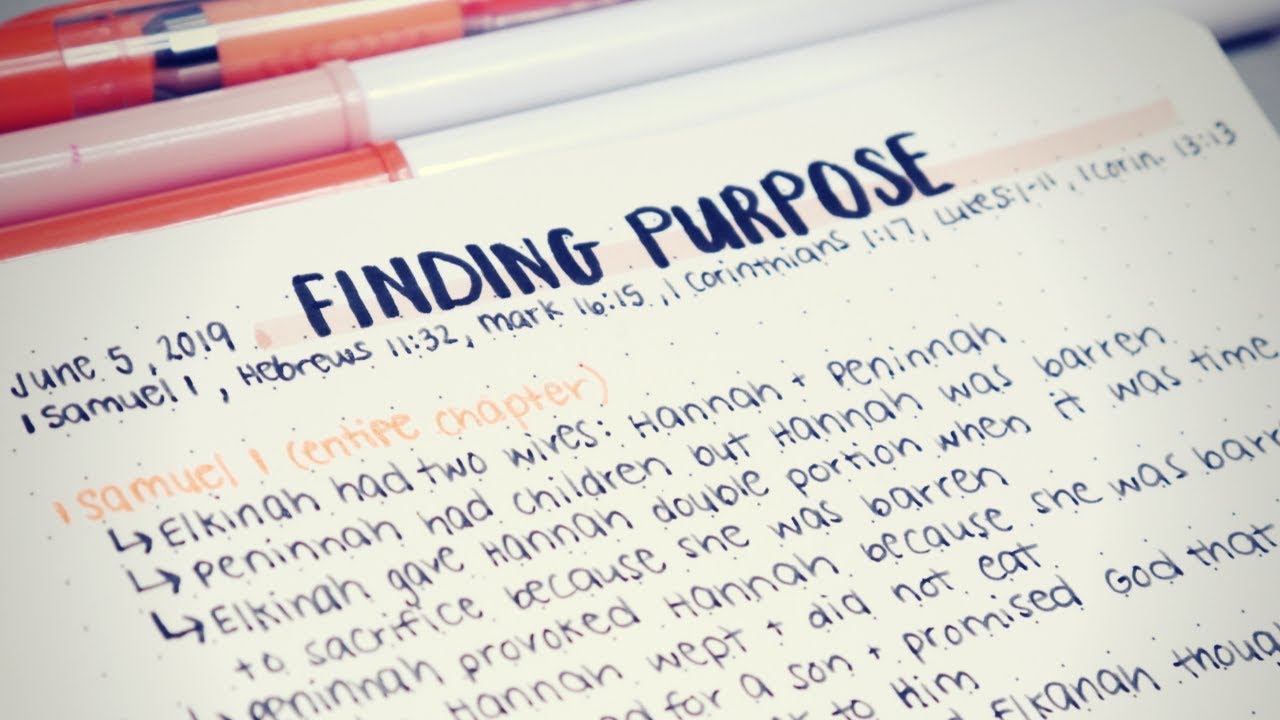 FINDING PURPOSE
June 5, 2019
1 Samuel 1, Hebrews 11:32, Mark 16:15, 1 Corinthians 1:17, Luke5:1-11, 1 Corin. 13:13
1 Samuel 1 (entire chapter)
↳ Elkinah had two wives: Hannah + Peninnah
↳ Peninnah had children but Hannah was barren
↳ Elkinah gave Hannah double portion when it was time
to sacrifice because she was barren
Peninnah provoked Hannah because she was barr
Hannah wept + did not eat
for a son + promised God that
to Him
Elkanah thoug